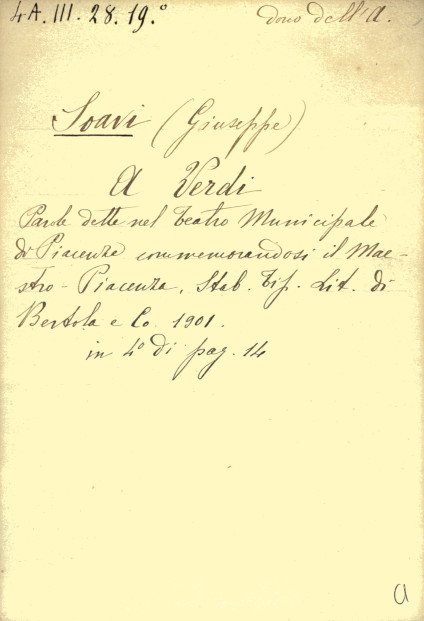 4A. III. 28. 19.°
dono dell'A.
Soavi (Giuseppe)
A Verdi
Parole dette nel Teatro Municipale
di Piacenza commemorandosi il Mae-
stro - Piacenza, Stab. Tip. Lit. di
Bertola e Co. 1901.
in 4° di pag. 14